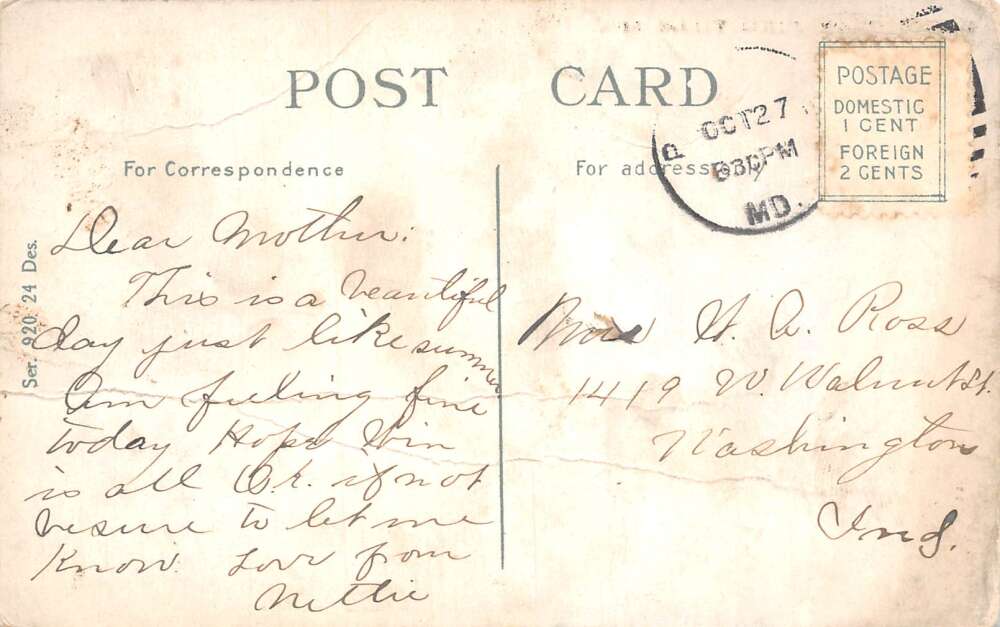 POST CARD
For Correspondence
For address only
OCT 27
830PM
MD.
POSTAGE
DOMESTIC
1 CENT
FOREIGN
2 CENTS
Ser. 920 24 Des.
Dear Mother:
This is a beautiful
day just like summer
Am feeling fine
today Hope Win
is all O.k. if not
be sure to let me
know. Love from
Nettie
Mrs W. A. Ross
1419 W. Walnut St.
Washington
Ind.